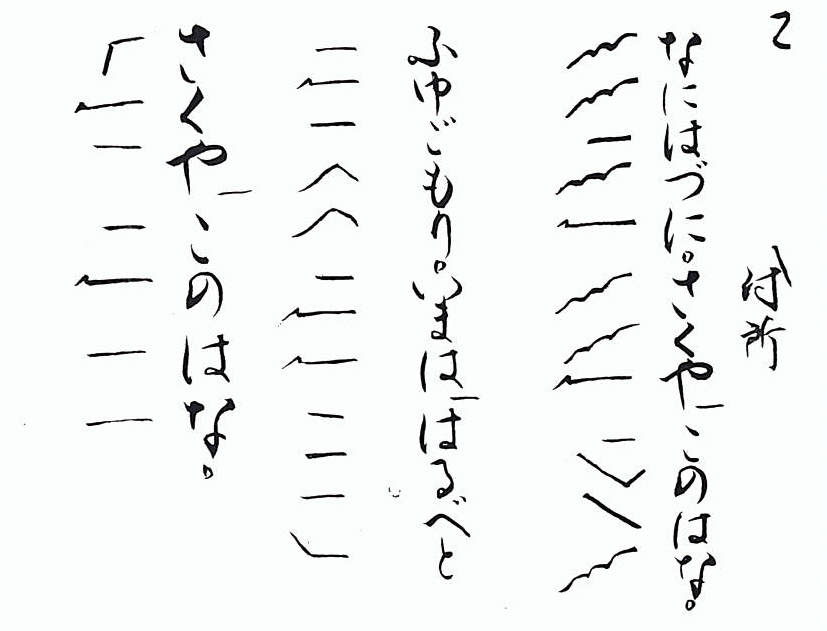 乙
付所
なにはづに。さくやこのはな。
ふゆごもり。いまははるべと
さくやこのはな。